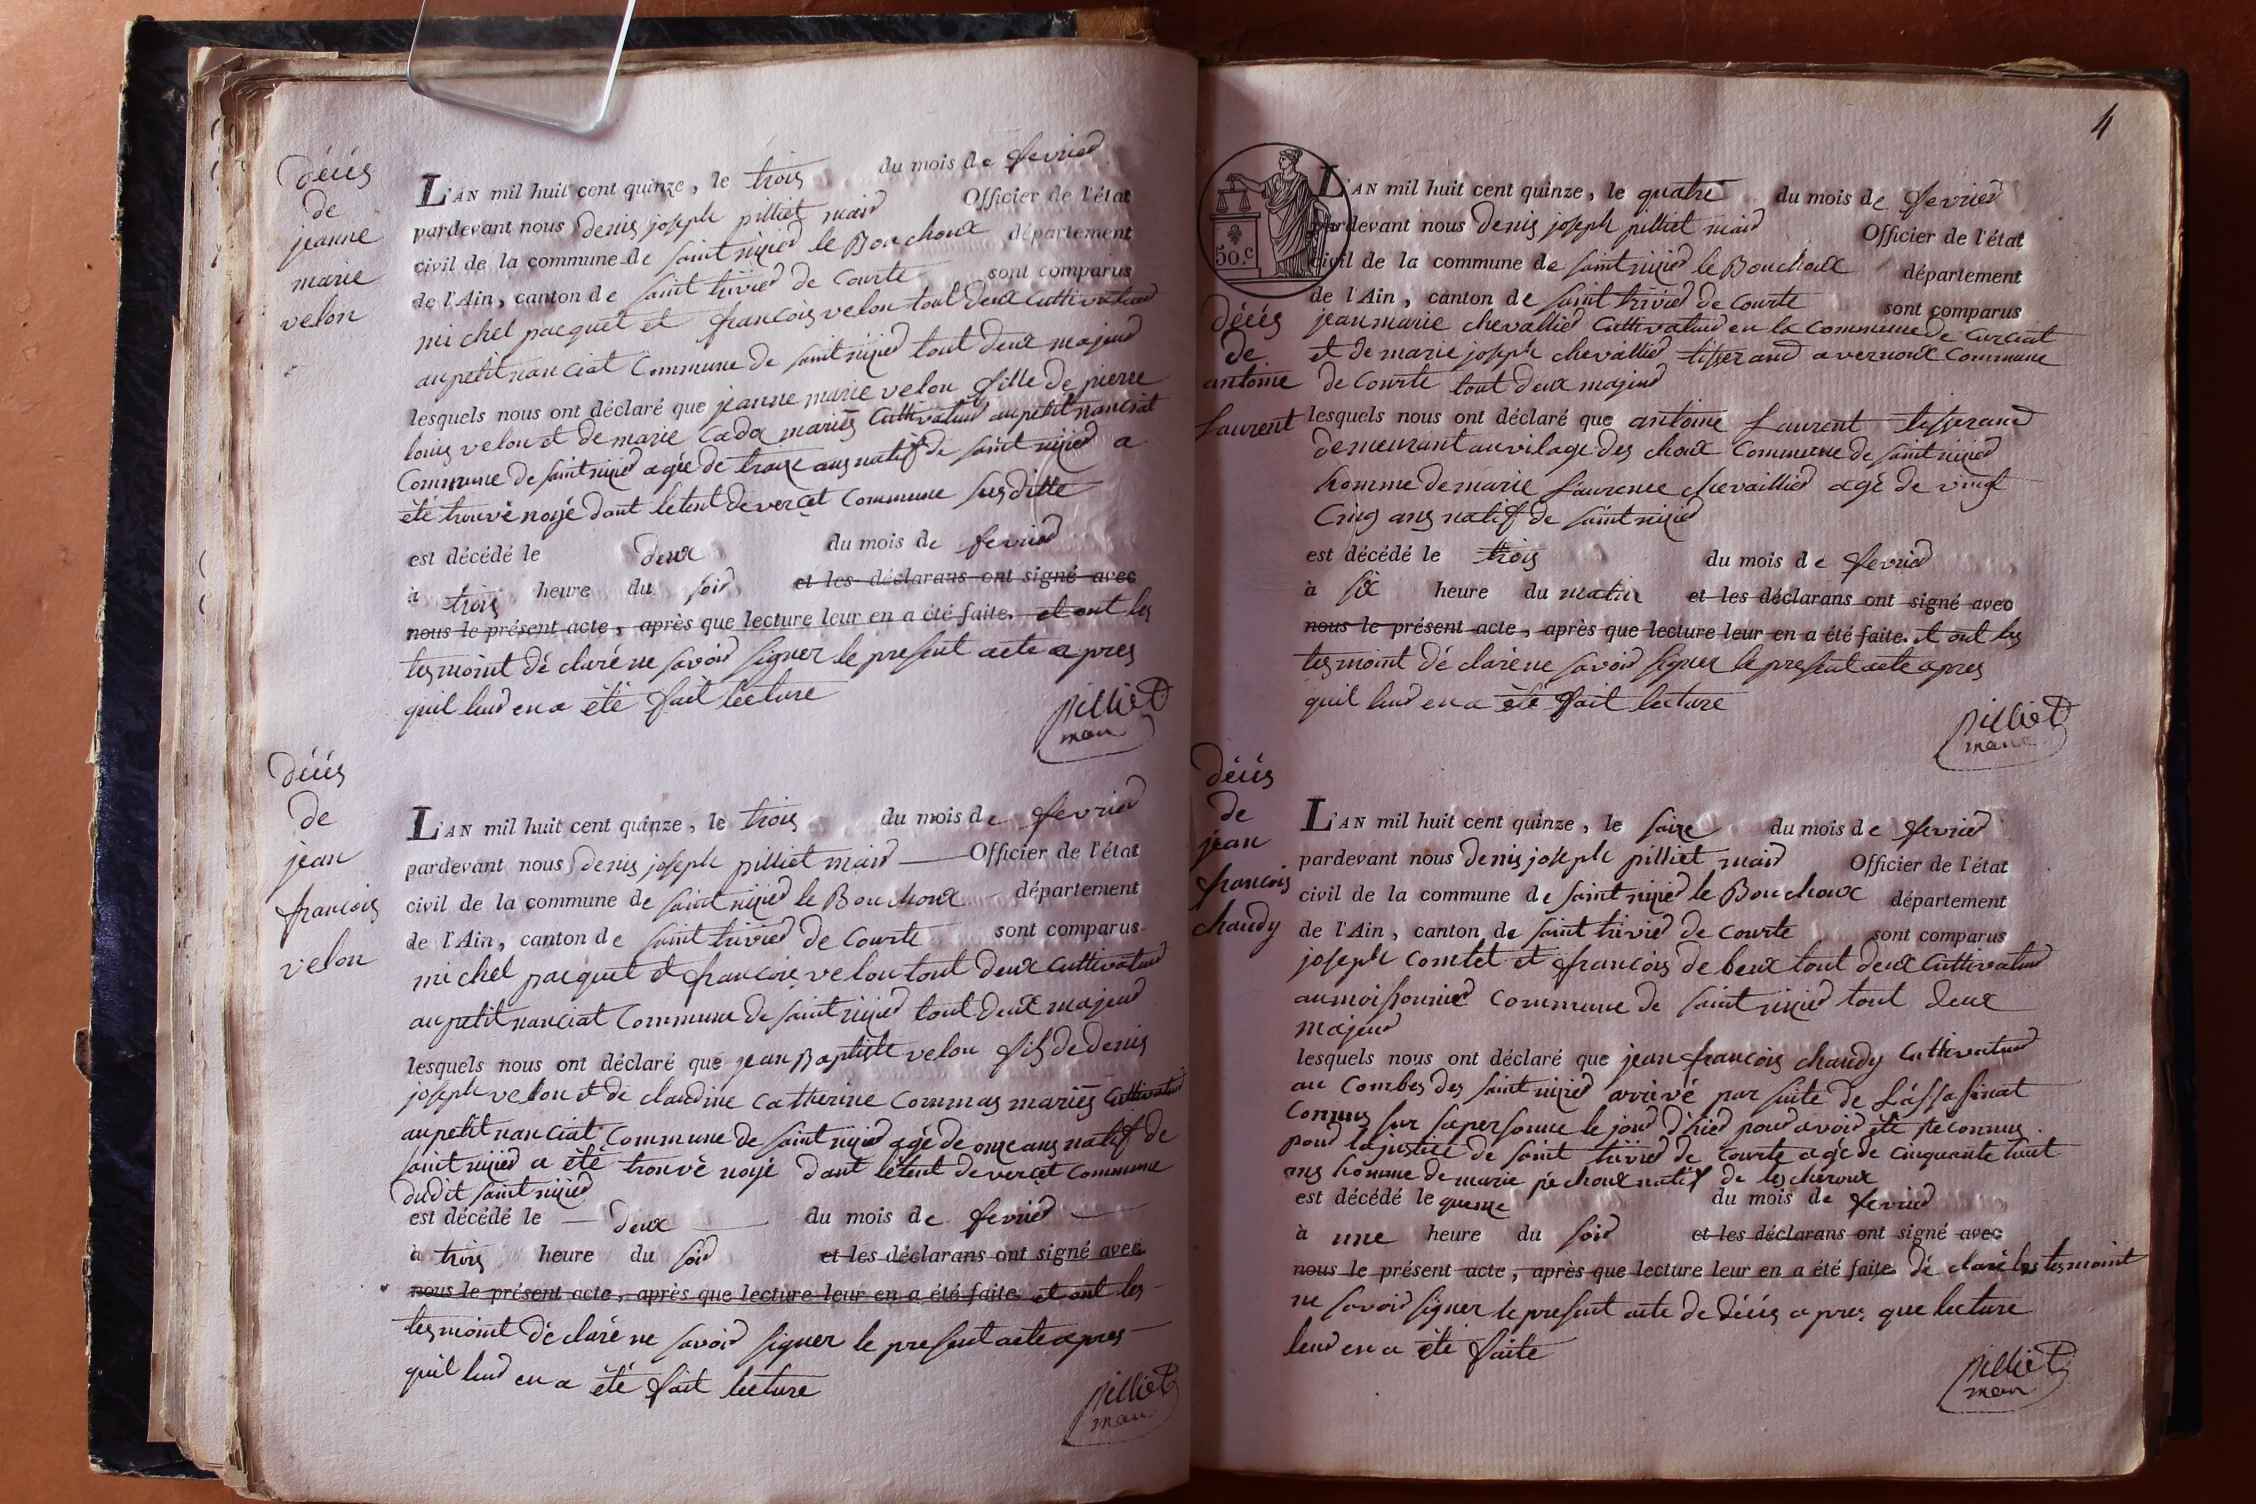 décés
de
jeanne
marie
velon
L'AN mil huit cent quinze, le trois du mois de fevrier
pardevant nous denis joseph pilliet maire Officier de l'état
civil de la commune de saint nizier le Bouchoux département
de l'Ain, canton de saint trivier de Courte sont comparus
michel pacquet et francois velon tout deux Cultivateur
au petit nanciat Commune de saint nizier tout deux majeur
lesquels nous ont déclaré que jeanne marie velon fille de pierre
louis velon et de marie Cadox mariés Cultivateur au petit nanciat
Commune de saint nizier agée de traize ans natif de saint nizier a
été trouvé noyé dant letent de verçet Commune susditte
est décédé le deux du mois de fevrier
à trois heure du soir et les déclarans ont signé avec
nous le présent acte, après que lecture leur en a été faite. et ont les
tesmoint déclaré ne savoir signer le present acte apres
quil leur en a été fait lecture
pilliet
maire
décés
de
jean
francois
velon
L'AN mil huit cent quinze, le trois du mois de fevrier
pardevant nous denis joseph pilliet maire Officier de l'état
civil de la commune de saint nizier le Bouchoux département
de l'Ain, canton de saint trivier de Courte sont comparus
michel pacquet et francois velon tout deux Cultivateur
au petit nanciat Commune de saint nizier tout deux majeur
lesquels nous ont déclaré que jean Baptiste velon fils de denis
joseph velon et de claudine catherine commas mariés Cultivateur
au petit nanciat Commune de saint nizier agé de onze ans natif de
saint nizier a été trouvé noyé dant létent de verçet commune
dudit saint nizier
est décédé le deux du mois de fevrier
à trois heure du soir et les déclarans ont signé avec
nous le présent acte, après que lecture leur en a été faite. et ont les
tesmoint déclaré ne savoir signer le present acte apres
quil leur en a été fait lecture
pilliet
maire
4
50.c
décés
de
antoine
Laurent
L'AN mil huit cent quinze, le quatre du mois de fevrier
pardevant nous denis joseph pilliet maire Officier de l'état
civil de la commune de saint nizier le Bouchoux département
de l'Ain, canton de saint trivier de Courte sont comparus
jean marie chevallier Cultivateur en la Commune de curciat
et de marie joseph chevallier tisserand a vernoux Commune
de Courte tout deux majeur
lesquels nous ont déclaré que antoine Laurent tisserand
demeurant au vilage des choux Commune de saint nizier
homme de marie Laurence chevaillier agé de vingt
Cinq ans natif de saint nizier
est décédé le trois du mois de fevrier
à six heure du matin et les déclarans ont signé avec
nous le présent acte, après que lecture leur en a été faite. et ont les
tesmoint déclaré ne savoir signer le present acte apres
quil leur en a été fait lecture
pilliet
maire
décés
de
jean
francois
chaudy
L'AN mil huit cent quinze, le saize du mois de fevrier
pardevant nous denis joseph pilliet maire Officier de l'état
civil de la commune de saint nizier le Bouchoux département
de l'Ain, canton de saint trivier de Courte sont comparus
joseph comtet et francois de beux tout deux Cultivateur
au moissonnier Commune de saint nizier tout deux
majeur
lesquels nous ont déclaré que jean francois chaudy Cultivateur
au Combes des saint nizier arrivé par suite de Lássasinat
Commis sur sa personne le jour d'hier pour avoir été reconnus
pour la justice de saint trivier de Courte agé de cinquante huit
ans homme de marie péchoux natif de lescheroux
est décédé le quinze du mois de fevrier
à une heure du soir et les déclarans ont signé avec
nous le présent acte, après que lecture leur en a été faite. déclaré les tesmoint
ne savoir signer le present acte de décés apres que lecture
leur en a été faite
pilliet
maire